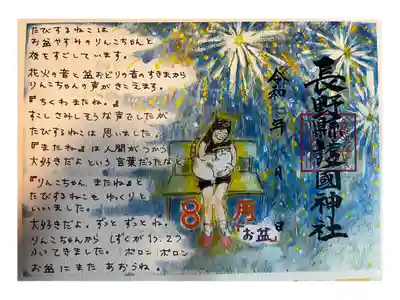 たびするねこは
お盆やすみのりんこちゃんと
夜をすごしています。
花火の音と盆おどりの音のすきまから
りんこちゃんの声がきこえます。
『ちくわ またね。』
すこしさみしそうな声でしたが
たびするねこは思いました。
『またね』は人間がつかう
大好きだよという言葉だったなと
『りんこちゃん、またね』と
たびするねこもゆっくりと
いいました。
大好きだよ。ずっとずっとね。
りんこちゃんから しずくが1つ、2つ
ふってきました。ポロン ポロン
お盆にまたあおうね。
長野縣護國神社
令和 年 月 日
8月
「お盆」